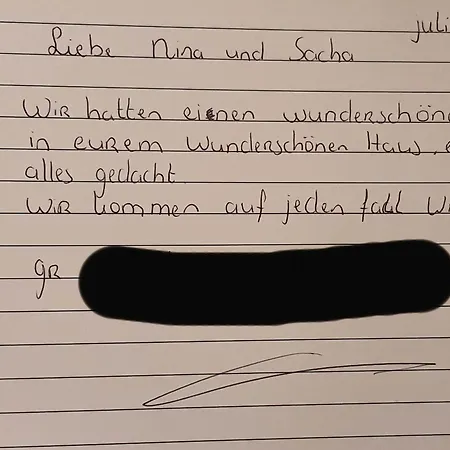 juli
Liebe Nina und Sacha
Wir hatten einen wunderschön
in eurem wunderschönen Haus, e
alles gedacht.
Wir kommen auf jeden fall Wi
gr